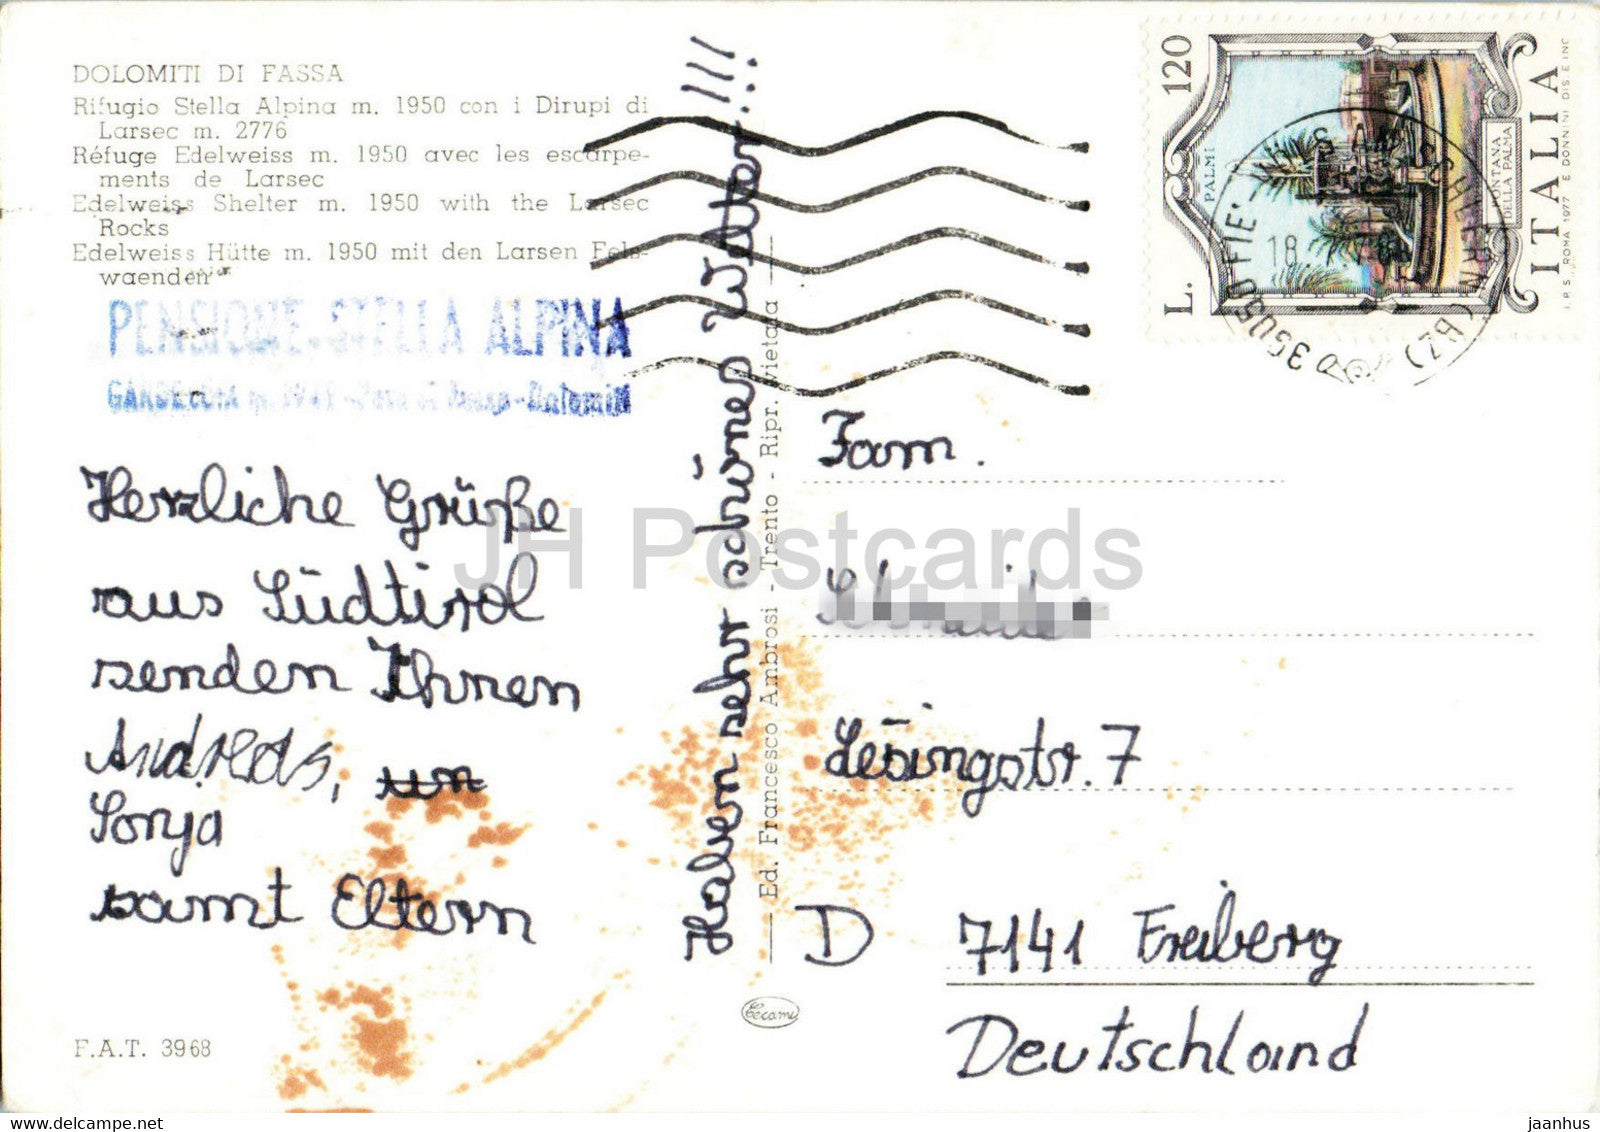 DOLOMITI DI FASSA
Rifugio Stella Alpina m. 1950 con i Dirupi di
Larsec m. 2776
Réfuge Edelweiss m. 1950 avec les escarpe-
ments de Larsec
Edelweiss Shelter m. 1950 with the Larsec
Rocks
Edelweiss Hütte m. 1950 mit den Larsen Fels-
waenden
PENSIONE STELLA ALPINA
Herzliche Grüße
aus Südtirol
senden Ihnen
Andreas,
Sonja
samt Eltern
F.A.T. 3968
Haben sehr schönes Wetter!!!
Ed. Francesco Ambrosi - Trento - Ripr. vietata
Cecami
L. 120
ITALIA
PALMI
FONTANA
DELLA PALMA
I.P.S. ROMA 1977 E DONNINI DIS. E INC.
39050 FIE'
(BZ)
Fam.
Lessingstr. 7
D 7141 Freiberg
Deutschland
JH Postcards
jaanhus